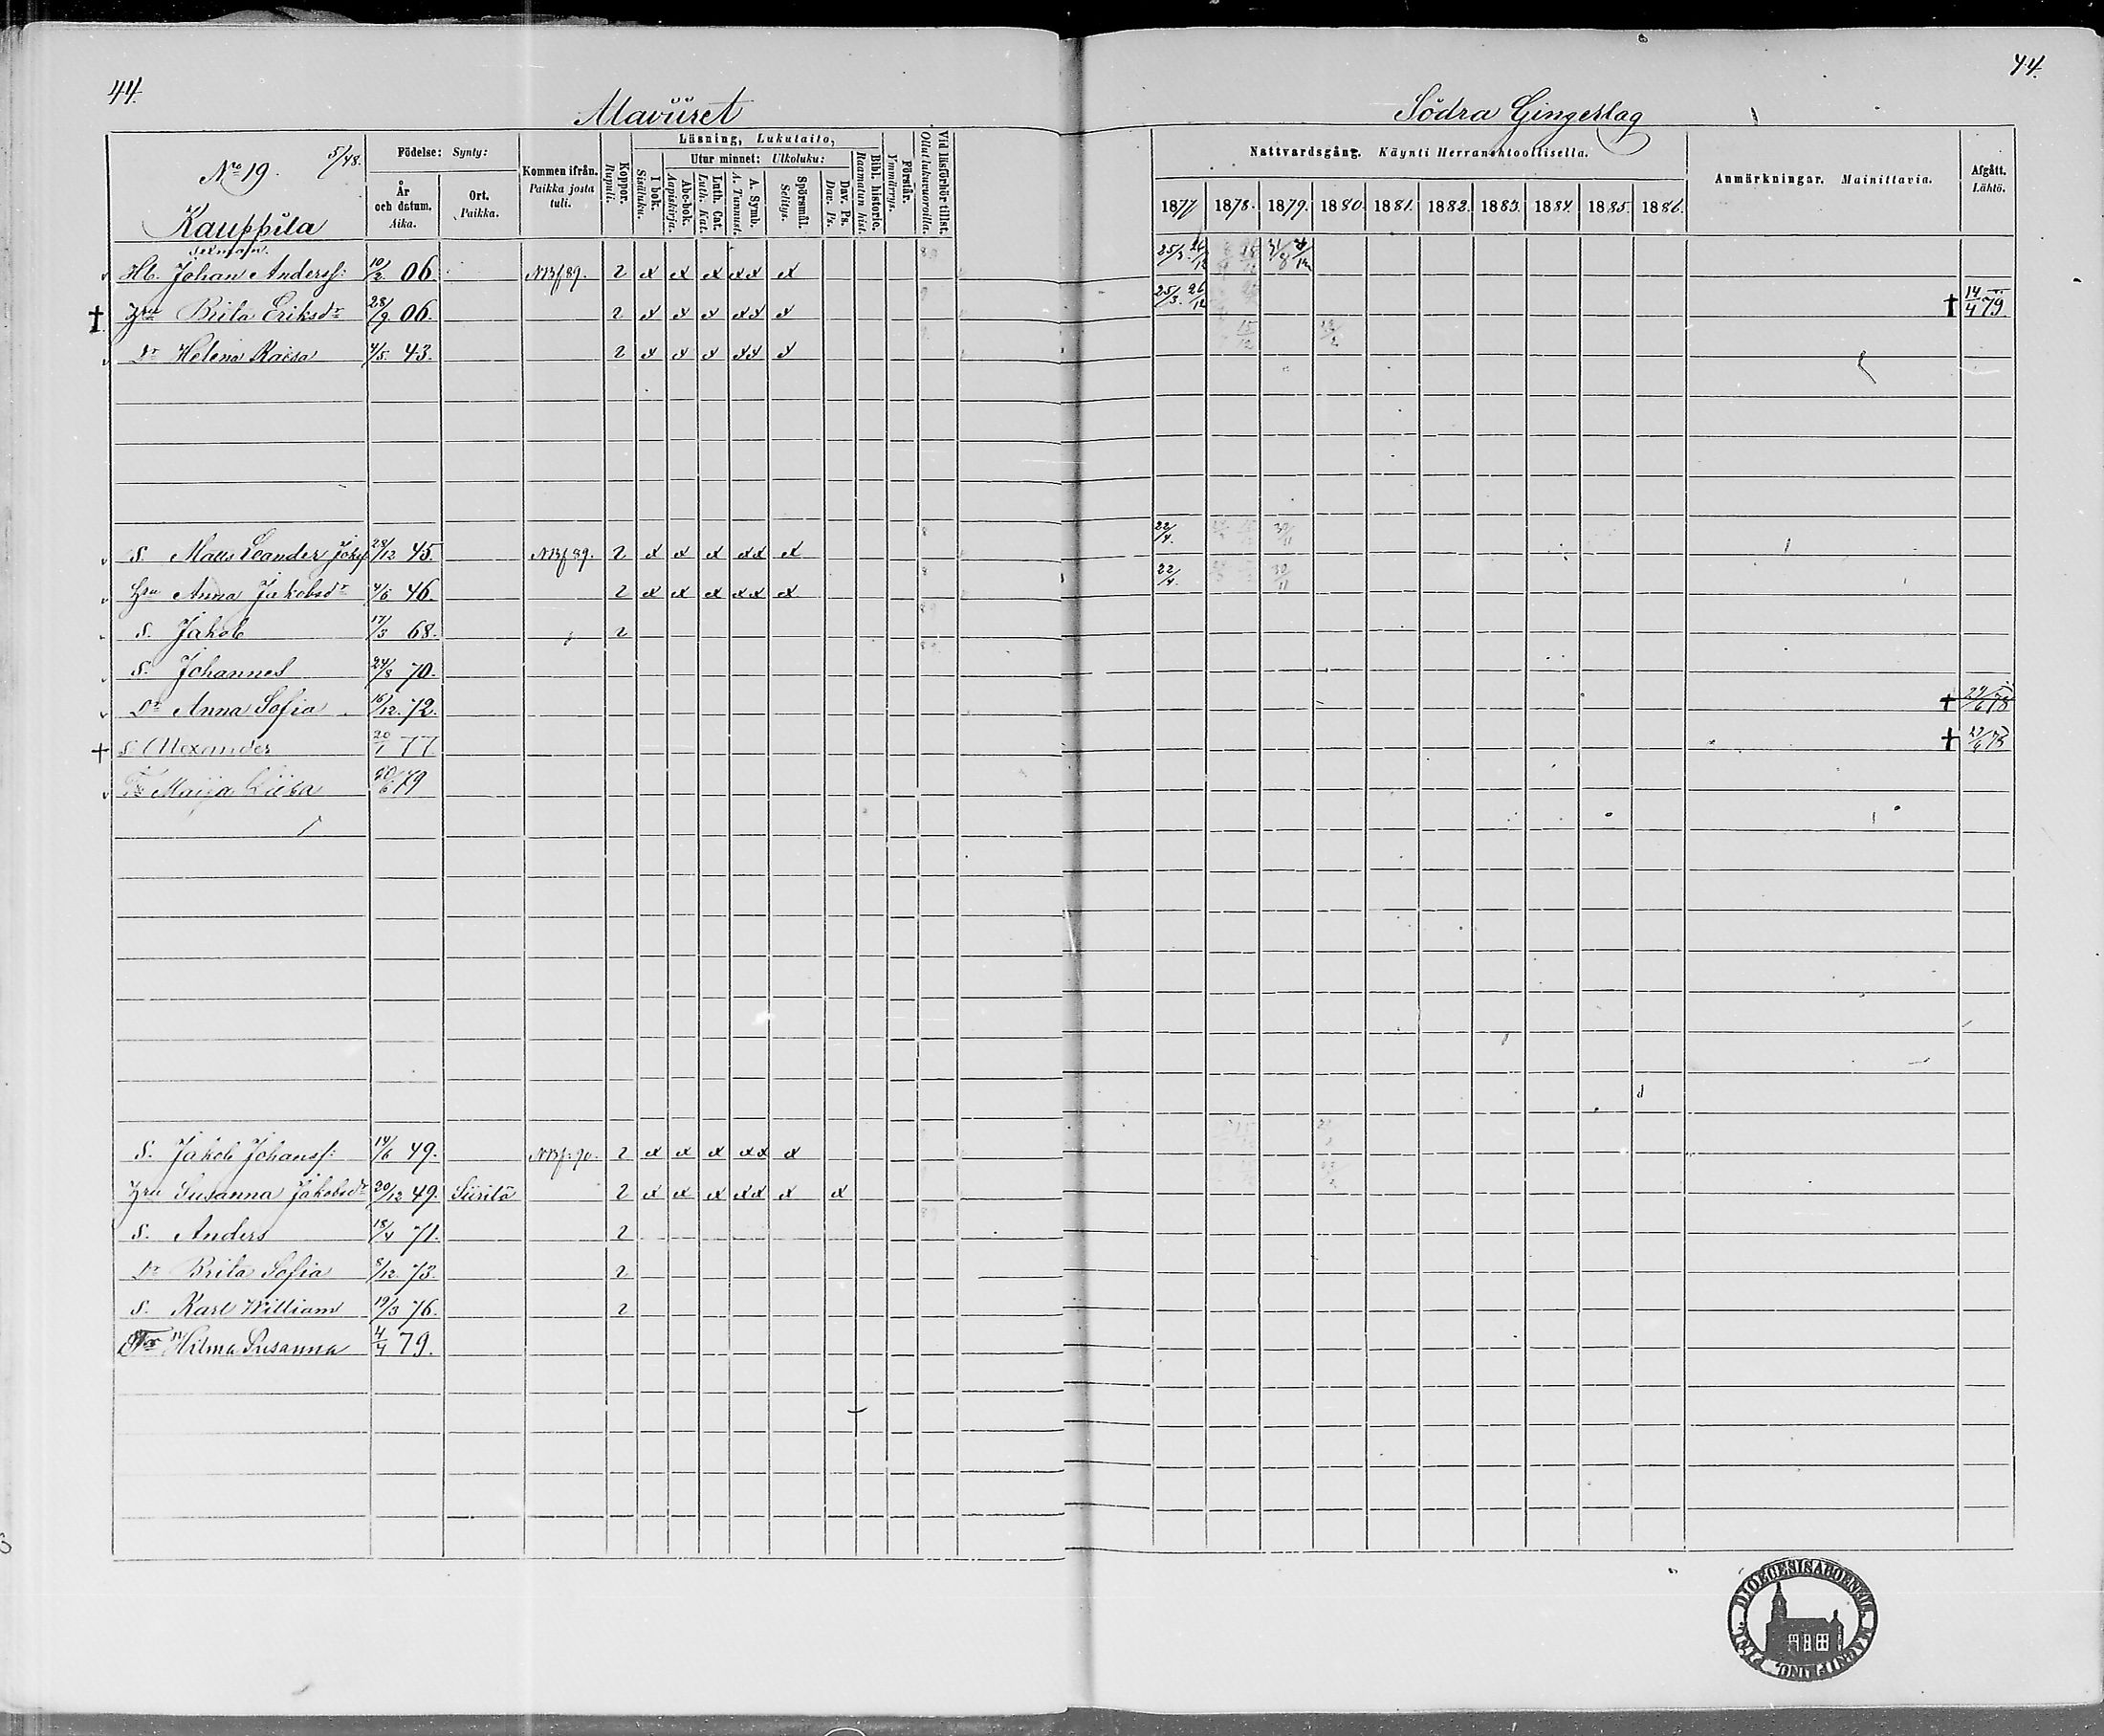 44. 44.
Alaviiret Södra Gingerslag
No 19. 5/48.
Kauppila
Födelse: Synty:
År och datum. Aika.
Ort. Paikka.
Kommen ifrån. Paikka josta tuli.
Koppor. Rupuli.
Läsning, Lukutaito,
I bok. Sisäluku.
Utur minnet: Ulkoluku:
Abc-bok. Aapiskirja.
Luth. Cat. Luth. Kat.
A. Symb. A. Tunnust.
Spörsmål. Selitys.
Dav. Ps. Dav. Ps.
Bibl. historie. Raamatun hist.
Förstår. Ymmärrys.
Vid läsförhör tillst. Ollut lukuvuoroilla.
Nattvardsgång. Käynti Herranehtoollisella.
1877 1878. 1879. 1880. 1881. 1882. 1883. 1884. 1885. 1886.
Anmärkningar. Mainittavia.
Afgått. Lähtö.
Hb. Johan Anderss: 10/2 06. NB f 89. 2 x x x xx x 25/3. 26/12
† Hru Brita Eriksdr 28/9 06. 2 x x x xx x 25/3. 26/12 † 14/4 79.
Dr Helena Kaisa 4/5 43. 2 x x x xx x
S. Matts Leander 28/12 45. NB f 89. 2 x x x xx x 22/4. 30/11
Hru Anna Jakobsdr 4/6 46. 2 x x x xx x 22/4. 30/11
S. Jakob 17/3 68. 2
S. Johannes 24/8 70.
Dr Anna Sofia 16/12. 72. †
† S Alexander 20/1 77 †
Dr Maija Liisa 79
S. Jakob Johanss: 14/6 49. NB f. 90. 2 x x x xx x
Hru Susanna Jakobsdr 20/12 49. 2 x x x xx x x
S. Anders 18/4 71. 2
Dr Brita Sofia 8/12. 73. 2
S. Karl William 19/3 76. 2
Dr Hilma Susanna 4/4 79.